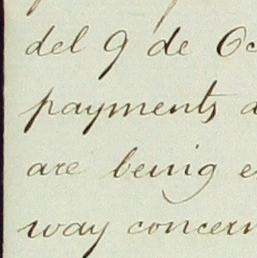 del 9 de Oc
payments a
are being e
way concern